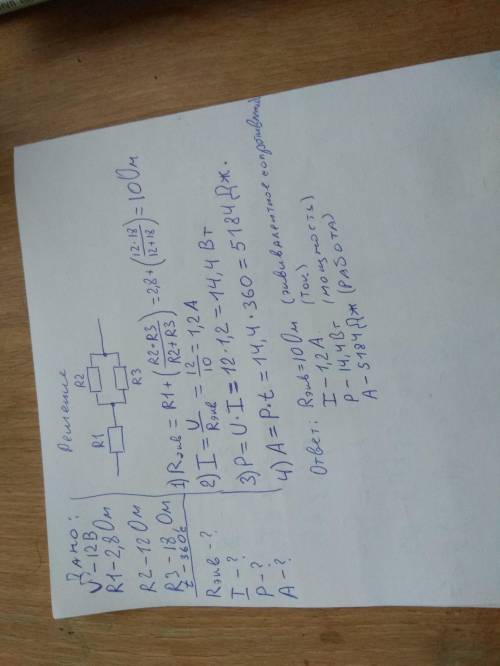 Дано:
U-12В
R1-2,8Ом
R2-12Ом
R3-18Ом
t-360с
Rэкв-?
I-?
P-?
A-?
Решение
R1
R2
R3
1) Rэкв = R1 + (R2·R3 / R2+R3) = 2,8 + (12·18 / 12+18) = 10Ом
2) I = U / Rэкв = 12 / 10 = 1,2А
3) P = U·I = 12·1,2 = 14,4 Вт
4) A = P·t = 14,4·360 = 5184 Дж.
Ответ: Rэкв=10Ом (эквивалентное сопротивление)
I-1,2А (ток)
P-14,4Вт (мощность)
A-5184 Дж (РАБОТА)